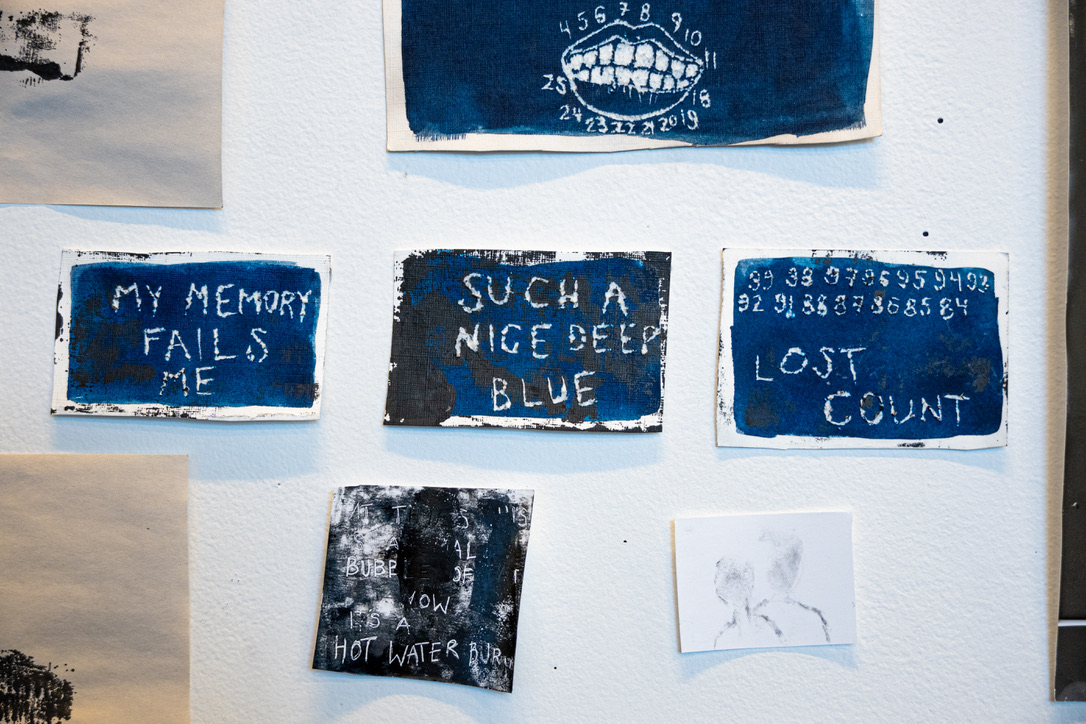 4 5 6 7 8 9 10 11
25 18
24 23 22 21 20 19
MY MEMORY
FAILS
ME
SUCH A
NICE DEEP
BLUE
99 98 97 96 95 94 93
92 91 88 87 86 85 84
LOST
COUNT
A
HOT WATER